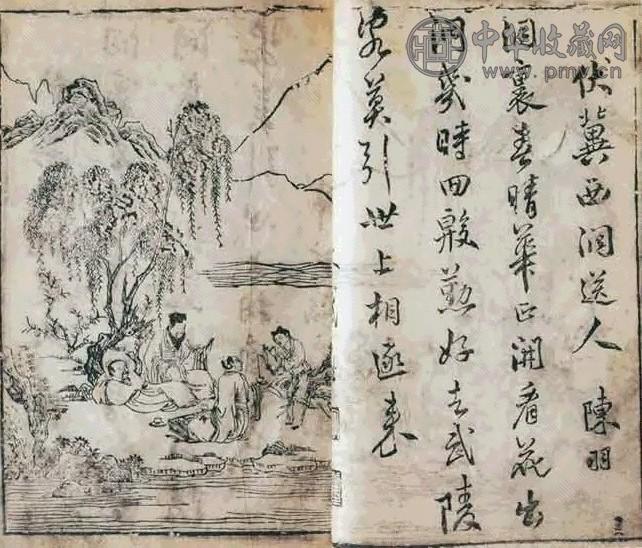 中华收藏网
www.pmv.cn
伏冀西洞送人 陳羽
洞裏春晴華正開看花出
洞幾時回殷懃好去武陵
客莫引世上相逐来